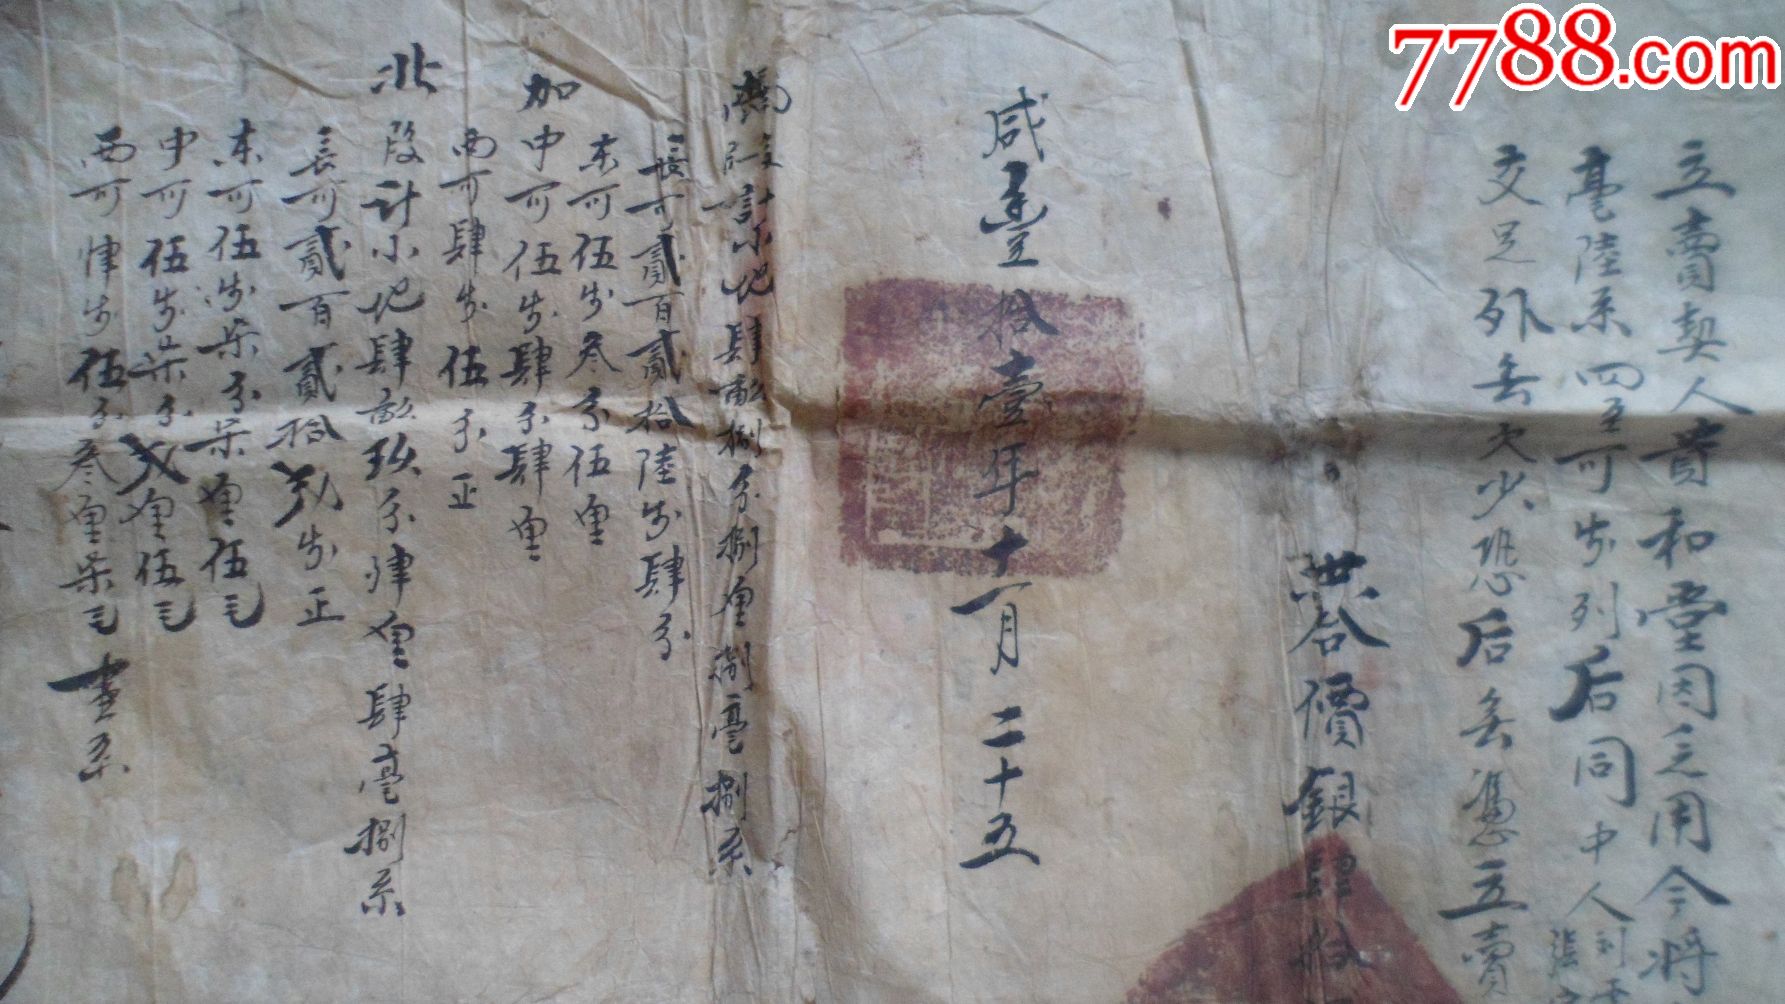 7788.com
立賣契人賈和堂因乏用今將
毫陸系四至可步列后同中人
交足外無欠少恐后無憑立賣
共合價銀肆拾
咸豐拾壹年十一月二十五
南段計小地肆畝捌分捌厘捌毫捌系
長可貳百貳拾陸步肆分
東可伍步叁分伍厘
加中可伍步肆分肆厘
西可肆步伍分正
北段計小地肆畝玖分肆厘肆毫捌系
長可貳百貳拾玖步正
東可伍步柒分柒厘伍毛
中可伍步柒分弍厘伍毛
西可肆步伍分叁厘柒毛